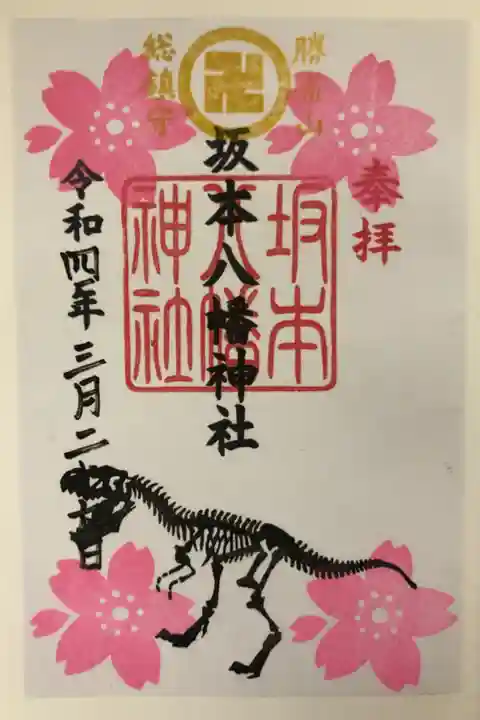 奉拝
総鎮守
坂本八幡神社
坂本
八幡
神社
令和四年三月二十日